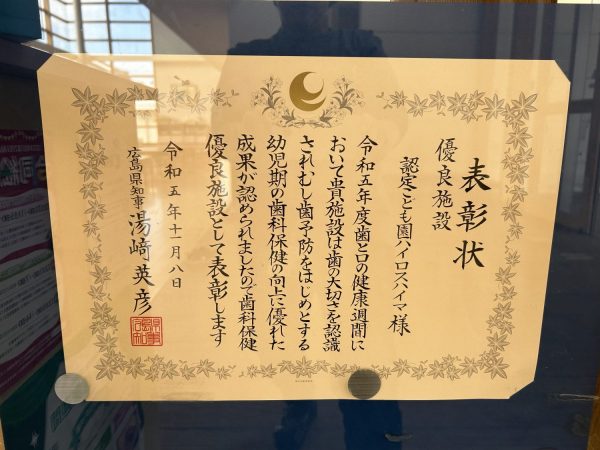 表彰状
優良施設
認定こども園ハイロスハイマ 様
令和五年度歯と口の健康週間に
おいて貴施設は歯の大切さを認識
されむし歯予防をはじめとする
幼児期の歯科保健の向上に優れた
成果が認められましたので歯科保健
優良施設として表彰します
令和五年十一月八日
広島県知事 湯﨑英彦